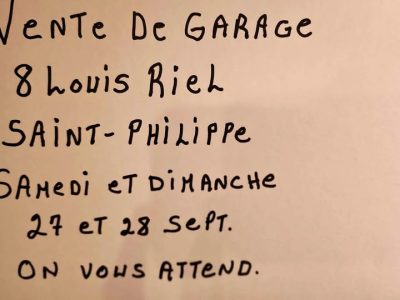 Vente De GARAGe
8 Louis Riel
SAiNT-PHiLiPPe
SAMeDi eT DiMANCHe
27 eT 28 SePT.
ON VOUS ATTEND.